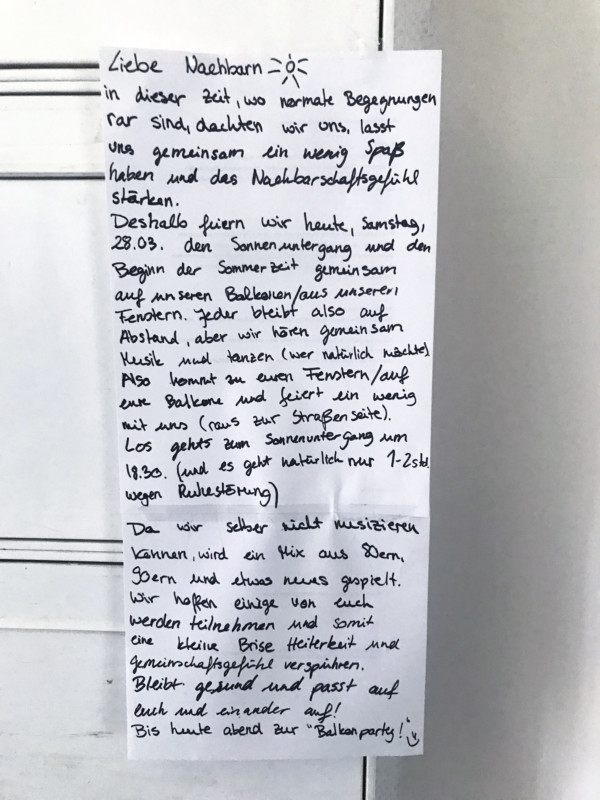 Liebe Nachbarn
in dieser Zeit, wo normale Begegnungen
rar sind, dachten wir uns, lasst
uns gemeinsam ein wenig Spaß
haben und das Nachbarschaftsgefühl
stärken.
Deshalb feiern wir heute, Samstag,
28.03. den Sonnenuntergang und den
Beginn der Sommerzeit gemeinsam
auf unseren Balkonen/aus unseren
Fenstern. Jeder bleibt also auf
Abstand, aber wir hören gemeinsam
Musik und tanzen (wer natürlich möchte).
Also kommt zu euren Fenstern/auf
eure Balkone und feiert ein wenig
mit uns (raus zur Straßenseite).
Los gehts zum Sonnenuntergang um
18.30. (und es geht natürlich nur 1-2 std.
wegen Ruhestörung)
Da wir selber nicht musizieren
können, wird ein Mix aus 80ern,
90ern und etwas neues gespielt.
Wir hoffen einige von euch
werden teilnehmen und somit
eine kleine Brise Heiterkeit und
gemeinschaftsgefühl verspühren.
Bleibt gesund und passt auf
euch und einander auf!
Bis heute abend zur "Balkonparty!"